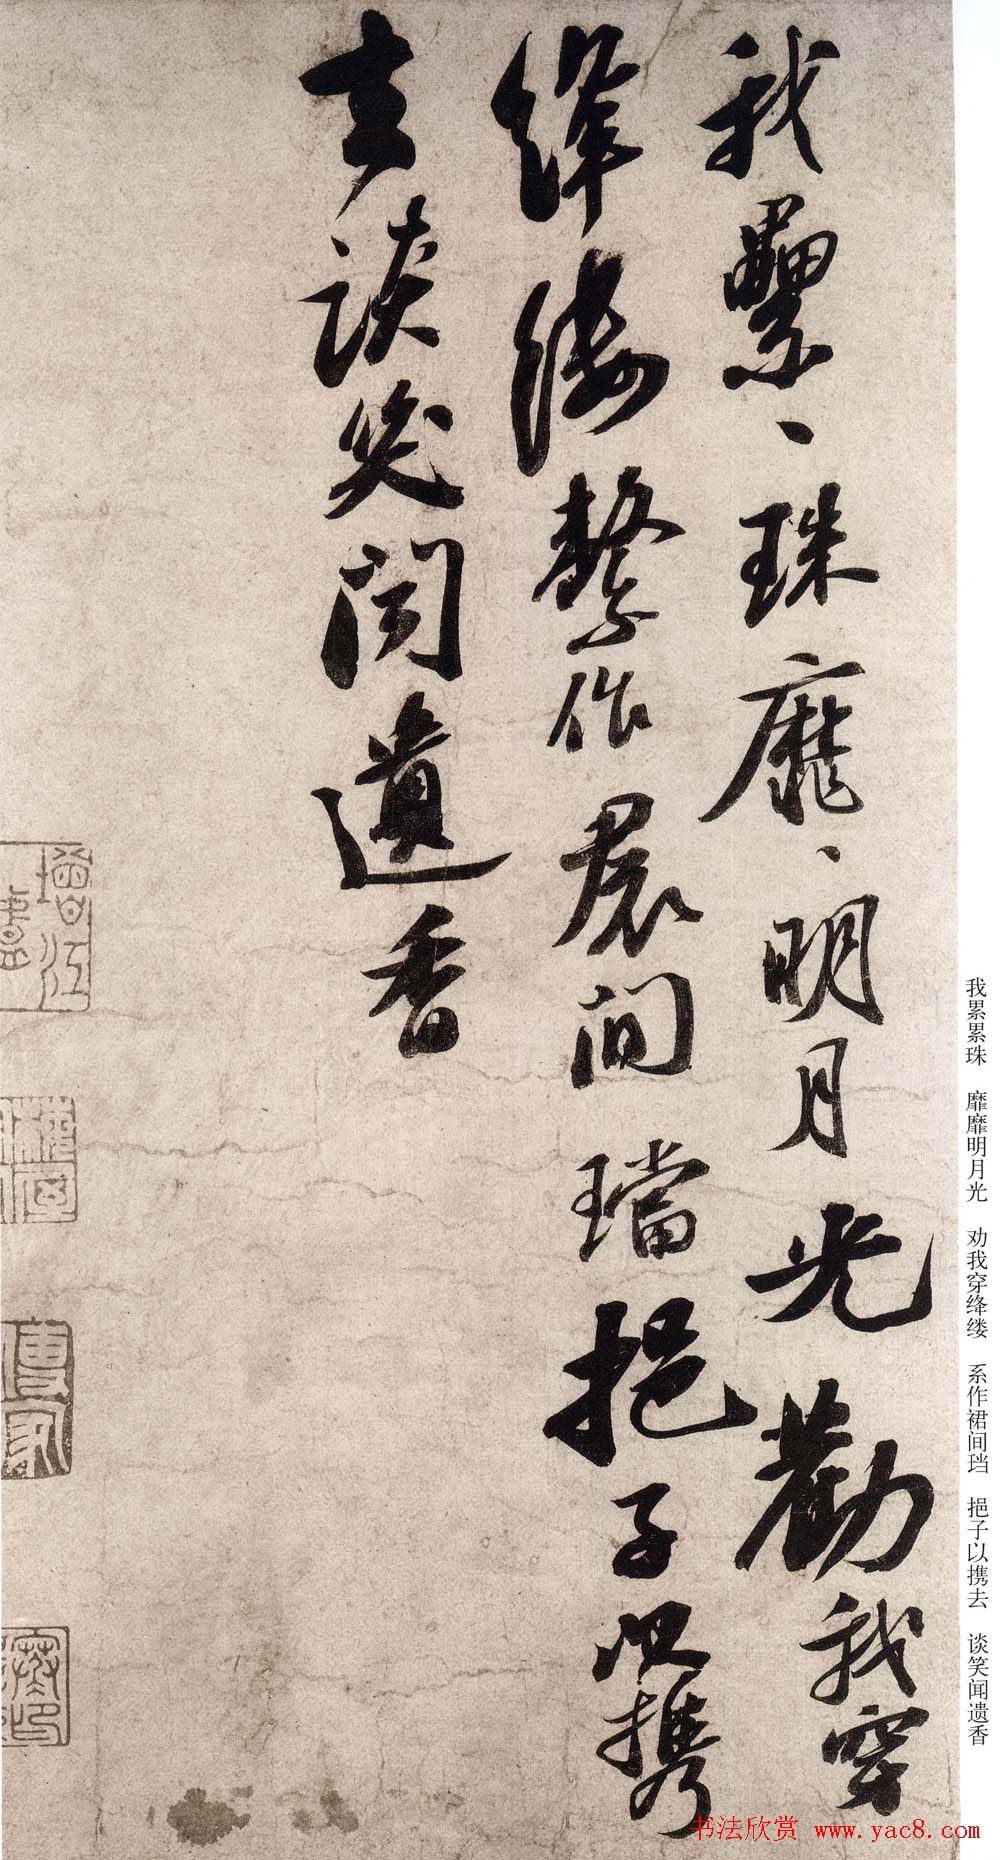 我纍、珠靡、明月光勸我穿
絳縷繫作裙间璫挹子以攜
去談笑闻遺香
我累累珠 靡靡明月光 劝我穿绛缕 系作裙间珰 挹子以携去 谈笑闻遗香
书法欣赏 www.yac8.com